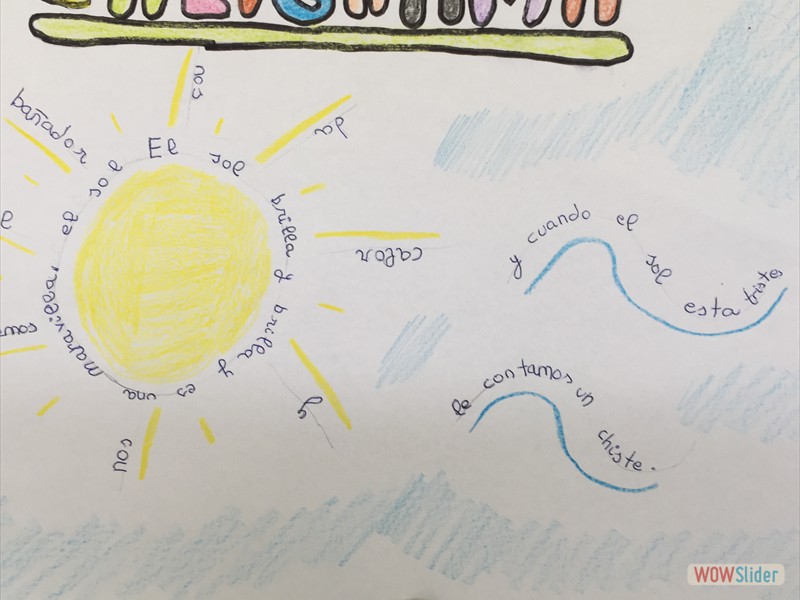 CALIGRAMA
El sol brilla y brilla y es una maravilla, el sol
nos
da
calor
y
con
bañador
y cuando el sol esta tristes
le contamos un chiste.
WOWSlider